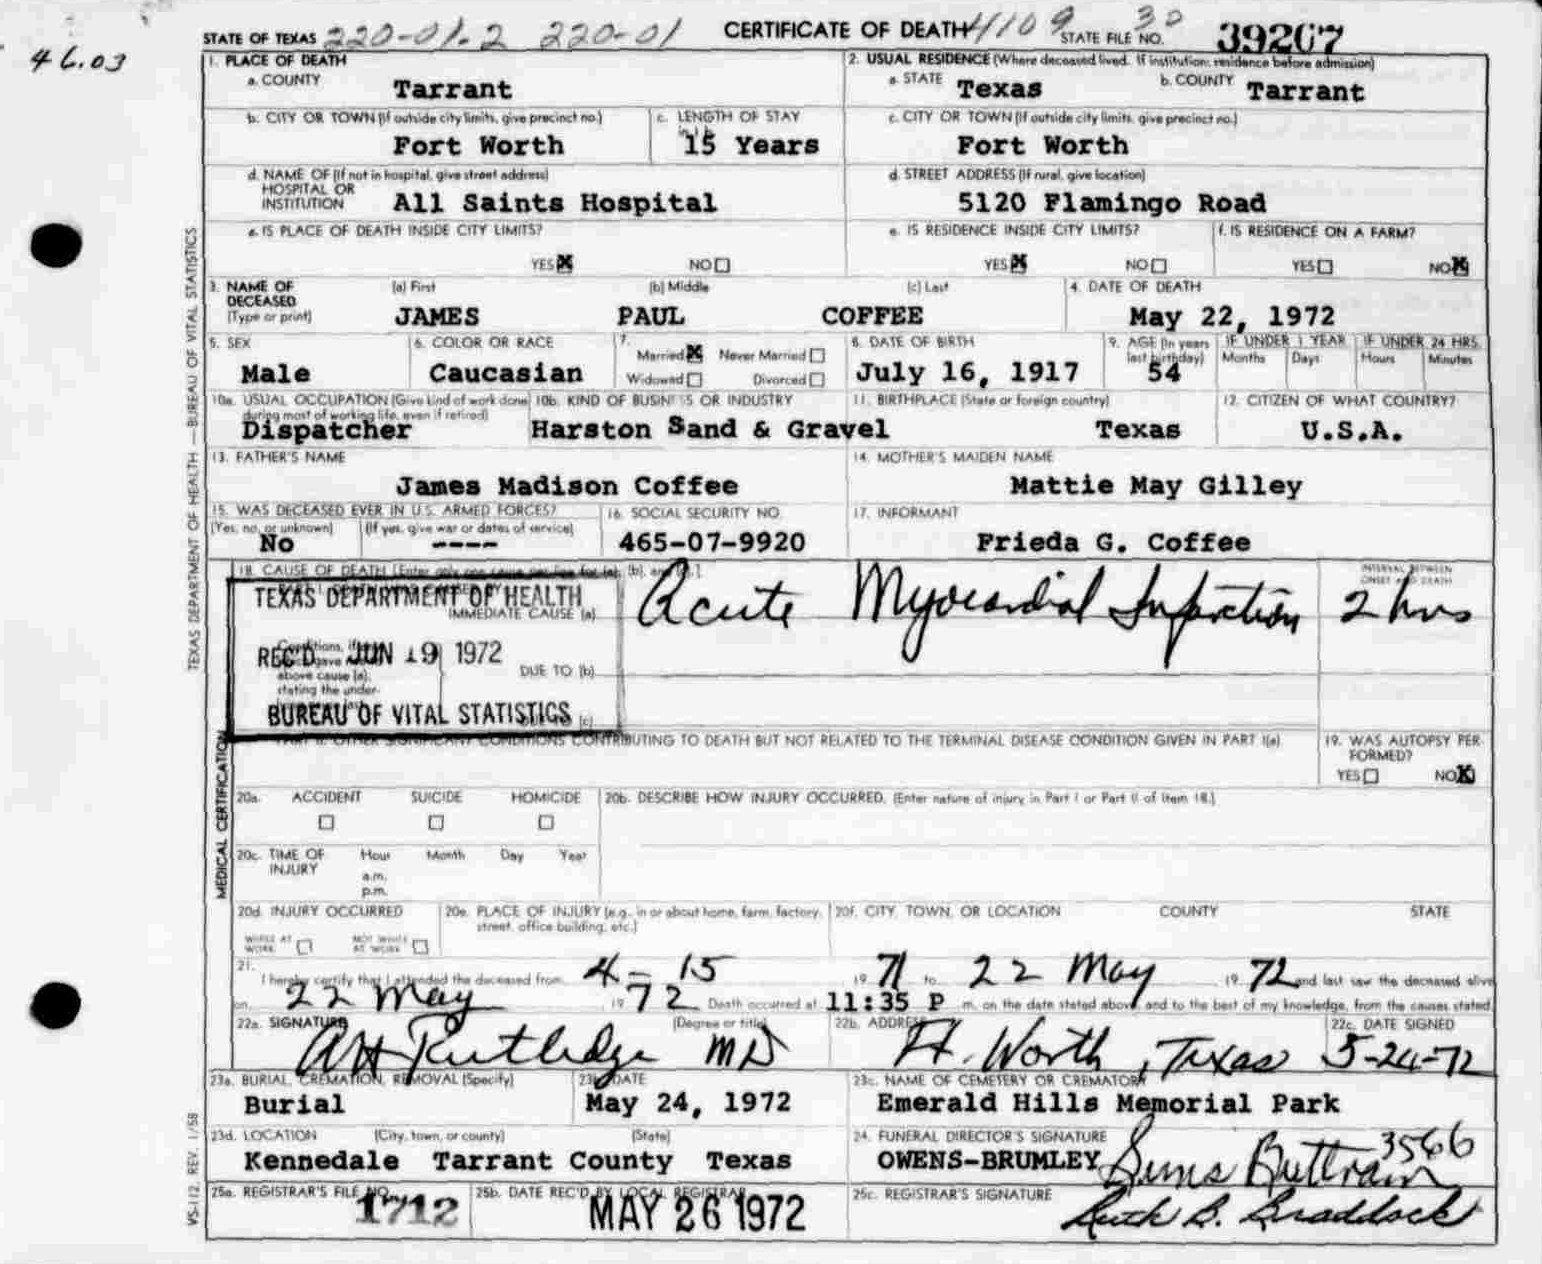 46.03
STATE OF TEXAS 220-01.2 220-01 CERTIFICATE OF DEATH 4109 STATE FILE NO. 30 39267
1. PLACE OF DEATH
a. COUNTY Tarrant
2. USUAL RESIDENCE (Where deceased lived. If institution: residence before admission)
a. STATE Texas b. COUNTY Tarrant
b. CITY OR TOWN (If outside city limits, give precinct no.) Fort Worth
c. LENGTH OF STAY 15 Years
c. CITY OR TOWN (If outside city limits, give precinct no.) Fort Worth
d. NAME OF (If not in hospital, give street address)
HOSPITAL OR
INSTITUTION All Saints Hospital
d. STREET ADDRESS (If rural, give location)
5120 Flamingo Road
e. IS PLACE OF DEATH INSIDE CITY LIMITS?
YES NO
e. IS RESIDENCE INSIDE CITY LIMITS?
YES NO
f. IS RESIDENCE ON A FARM?
YES NO
3. NAME OF
DECEASED
(Type or print)
(a) First (b) Middle (c) Last
JAMES PAUL COFFEE
4. DATE OF DEATH
May 22, 1972
5. SEX
Male
6. COLOR OR RACE
Caucasian
7.
Married Never Married
Widowed Divorced
8. DATE OF BIRTH
July 16, 1917
9. AGE (In years
last birthday)
54
IF UNDER 1 YEAR
Months Days
IF UNDER 24 HRS.
Hours Minutes
10a. USUAL OCCUPATION (Give kind of work done
during most of working life, even if retired)
Dispatcher
10b. KIND OF BUSINESS OR INDUSTRY
Harston Sand & Gravel
11. BIRTHPLACE (State or foreign country)
Texas
12. CITIZEN OF WHAT COUNTRY?
U.S.A.
13. FATHER'S NAME
James Madison Coffee
14. MOTHER'S MAIDEN NAME
Mattie May Gilley
15. WAS DECEASED EVER IN U.S. ARMED FORCES?
(Yes, no, or unknown) (If yes, give war or dates of service)
No ----
16. SOCIAL SECURITY NO.
465-07-9920
17. INFORMANT
Frieda G. Coffee
18. CAUSE OF DEATH [Enter only one cause per line for (a), (b), and (c).]
TEXAS DEPARTMENT OF HEALTH
IMMEDIATE CAUSE (a) Acute Myocardial Infarction
INTERVAL BETWEEN
ONSET AND DEATH
2 hrs
REC'D JUN 19 1972
above cause (a),
stating the under-
DUE TO (b)
BUREAU OF VITAL STATISTICS
(c)
PART II. OTHER SIGNIFICANT CONDITIONS CONTRIBUTING TO DEATH BUT NOT RELATED TO THE TERMINAL DISEASE CONDITION GIVEN IN PART I(a)
19. WAS AUTOPSY PER
FORMED?
YES NO
20a. ACCIDENT SUICIDE HOMICIDE
20b. DESCRIBE HOW INJURY OCCURRED. (Enter nature of injury in Part I or Part II of Item 18.)
20c. TIME OF
INJURY
Hour Month Day Year
a.m.
p.m.
20d. INJURY OCCURRED
WHILE AT
WORK
NOT WHILE
AT WORK
20e. PLACE OF INJURY (e.g., in or about home, farm, factory,
street, office building, etc.)
20f. CITY, TOWN, OR LOCATION COUNTY STATE
21.
I hereby certify that I attended the deceased from 4-15 1971 to 22 May 1972 and last saw the deceased alive
on 22 May 1972 Death occurred at 11:35 P m. on the date stated above and to the best of my knowledge, from the causes stated.
22a. SIGNATURE (Degree or title)
Rutledge MD
22b. ADDRESS
Ft. Worth, Texas
22c. DATE SIGNED
5-24-72
23a. BURIAL, CREMATION, REMOVAL (Specify)
Burial
23b. DATE
May 24, 1972
23c. NAME OF CEMETERY OR CREMATORY
Emerald Hills Memorial Park
23d. LOCATION (City, town, or county) (State)
Kennedale Tarrant County Texas
24. FUNERAL DIRECTOR'S SIGNATURE
OWENS-BRUMLEY 3566
25a. REGISTRAR'S FILE NO.
1712
25b. DATE REC'D BY LOCAL REGISTRAR
MAY 26 1972
25c. REGISTRAR'S SIGNATURE
Ruth B. Braddock
TEXAS DEPARTMENT OF HEALTH — BUREAU OF VITAL STATISTICS
MEDICAL CERTIFICATION
VS-112 REV. 1/58